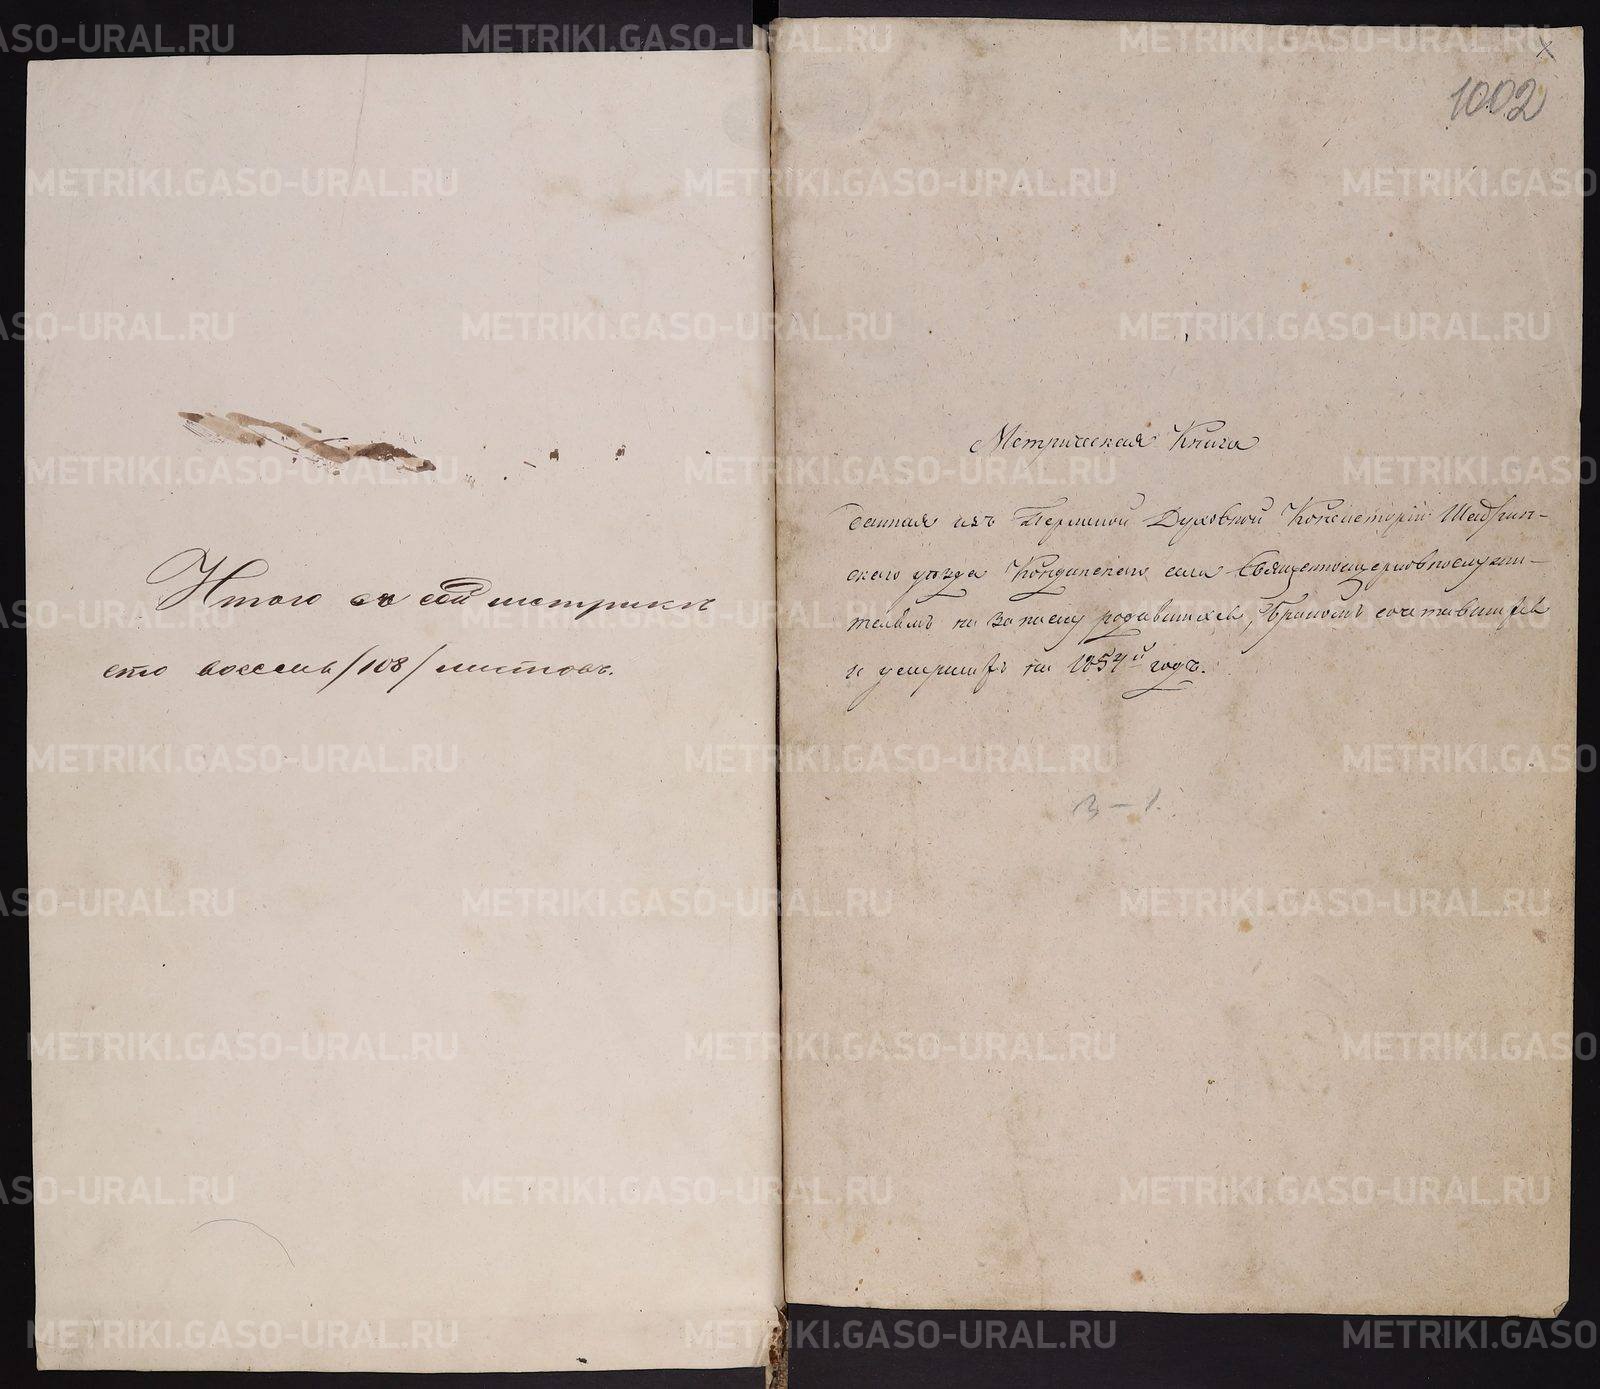 Итого въ сей метрикѣ
сто восемь /108/ листовъ.
1002
Метрическая Книга
данная изъ Пермской Духовной Консисторіи Шадрин-
скаго уѣзда Кондинскаго села Священноцерковнослужи-
телямъ на записку родившихся, бракомъ сочетавшихся
и умершихъ на 1854й годъ.
METRIKI.GASO-URAL.RU